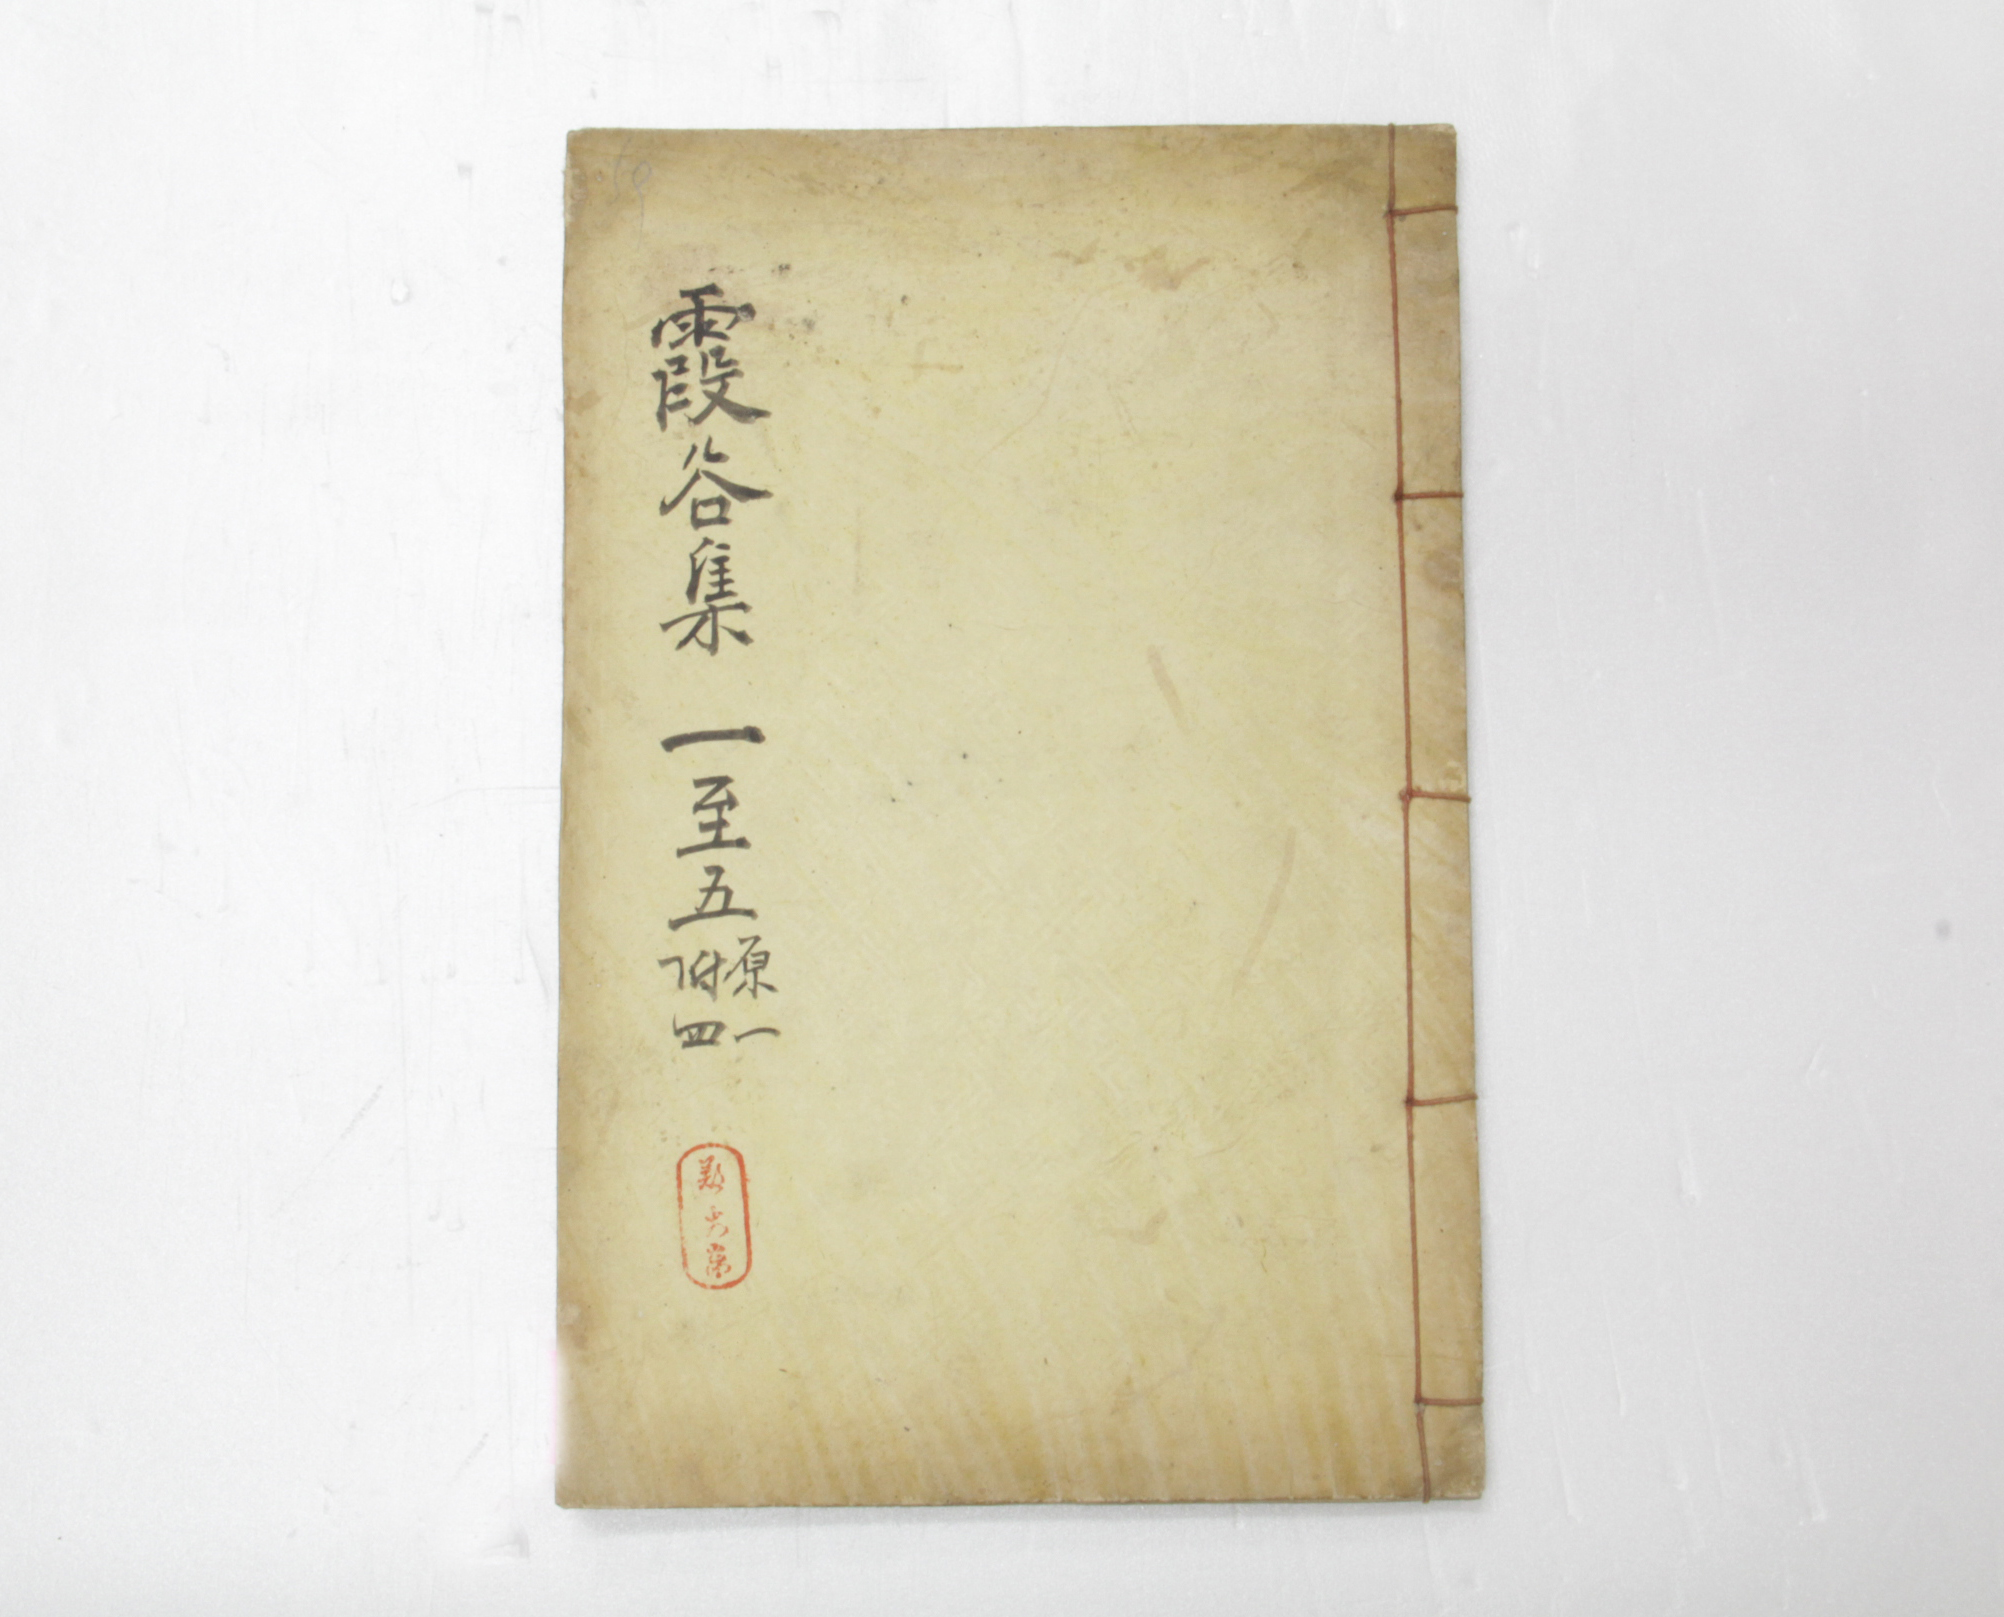 霞谷集 一至五
原一
附四